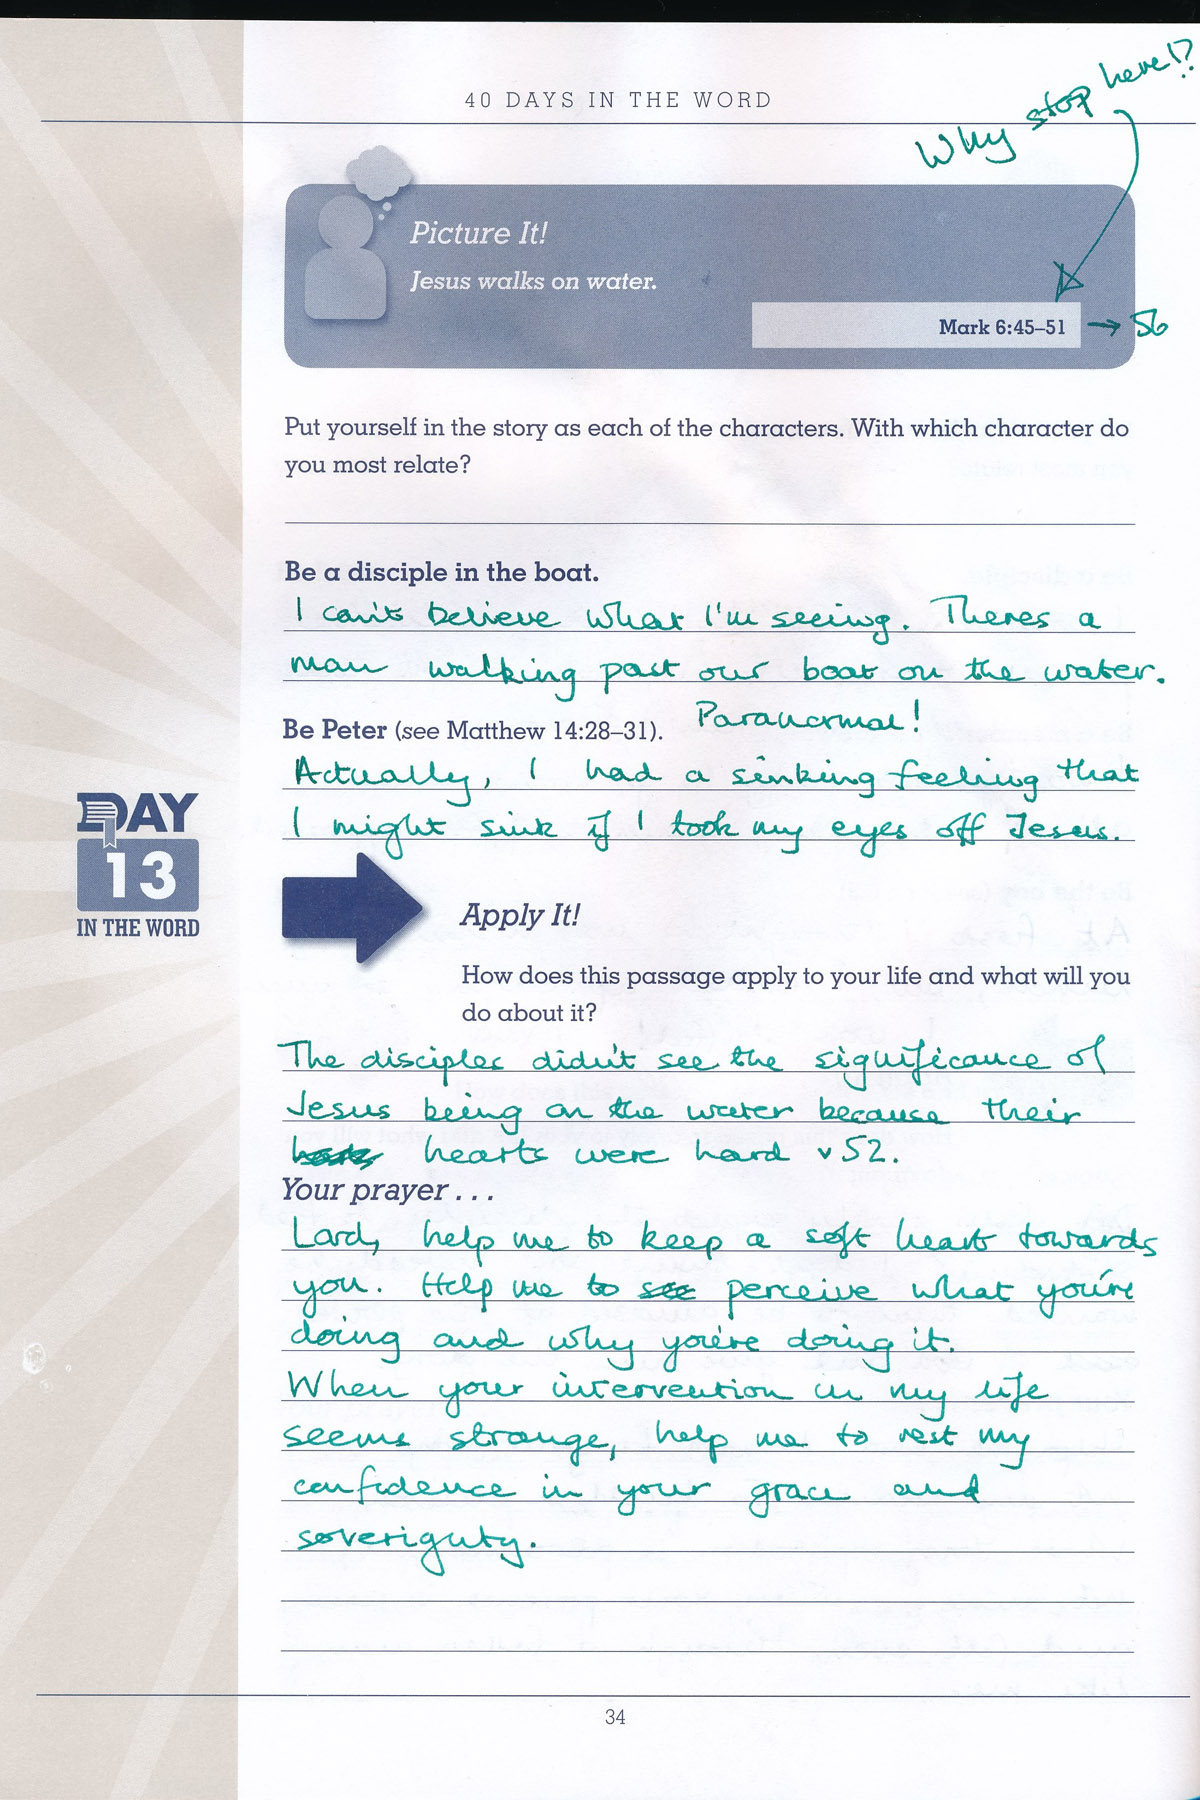 40 DAYS IN THE WORD
Why stop here!?
Picture It!
Jesus walks on water.
Mark 6:45–51 → 56
Put yourself in the story as each of the characters. With which character do
you most relate?
Be a disciple in the boat.
I can't believe what I'm seeing. Theres a
man walking past our boat on the water.
Paranormal!
Be Peter (see Matthew 14:28–31).
Actually, I had a sinking feeling that
I might sink if I took my eyes off Jesus.
DAY
13
IN THE WORD
Apply It!
How does this passage apply to your life and what will you
do about it?
The disciples didn't see the significance of
Jesus being on the water because their
hearts were hard v 52.
Your prayer . . .
Lord, help me to keep a soft heart towards
you. Help me to see perceive what you're
doing and why you're doing it.
When your intervention in my life
seems strange, help me to rest my
confidence in your grace and
soveriguty.
34